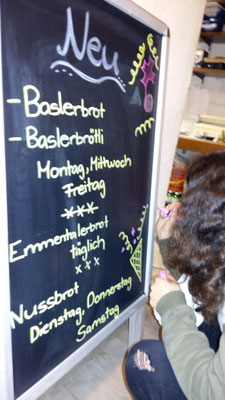 Neu
- Baslerbrot
- Baslerbrötli
Montag, Mittwoch
Freitag
***
Emmentalerbrot
täglich
xxx
Nussbrot
Dienstag, Donnerstag
Samstag